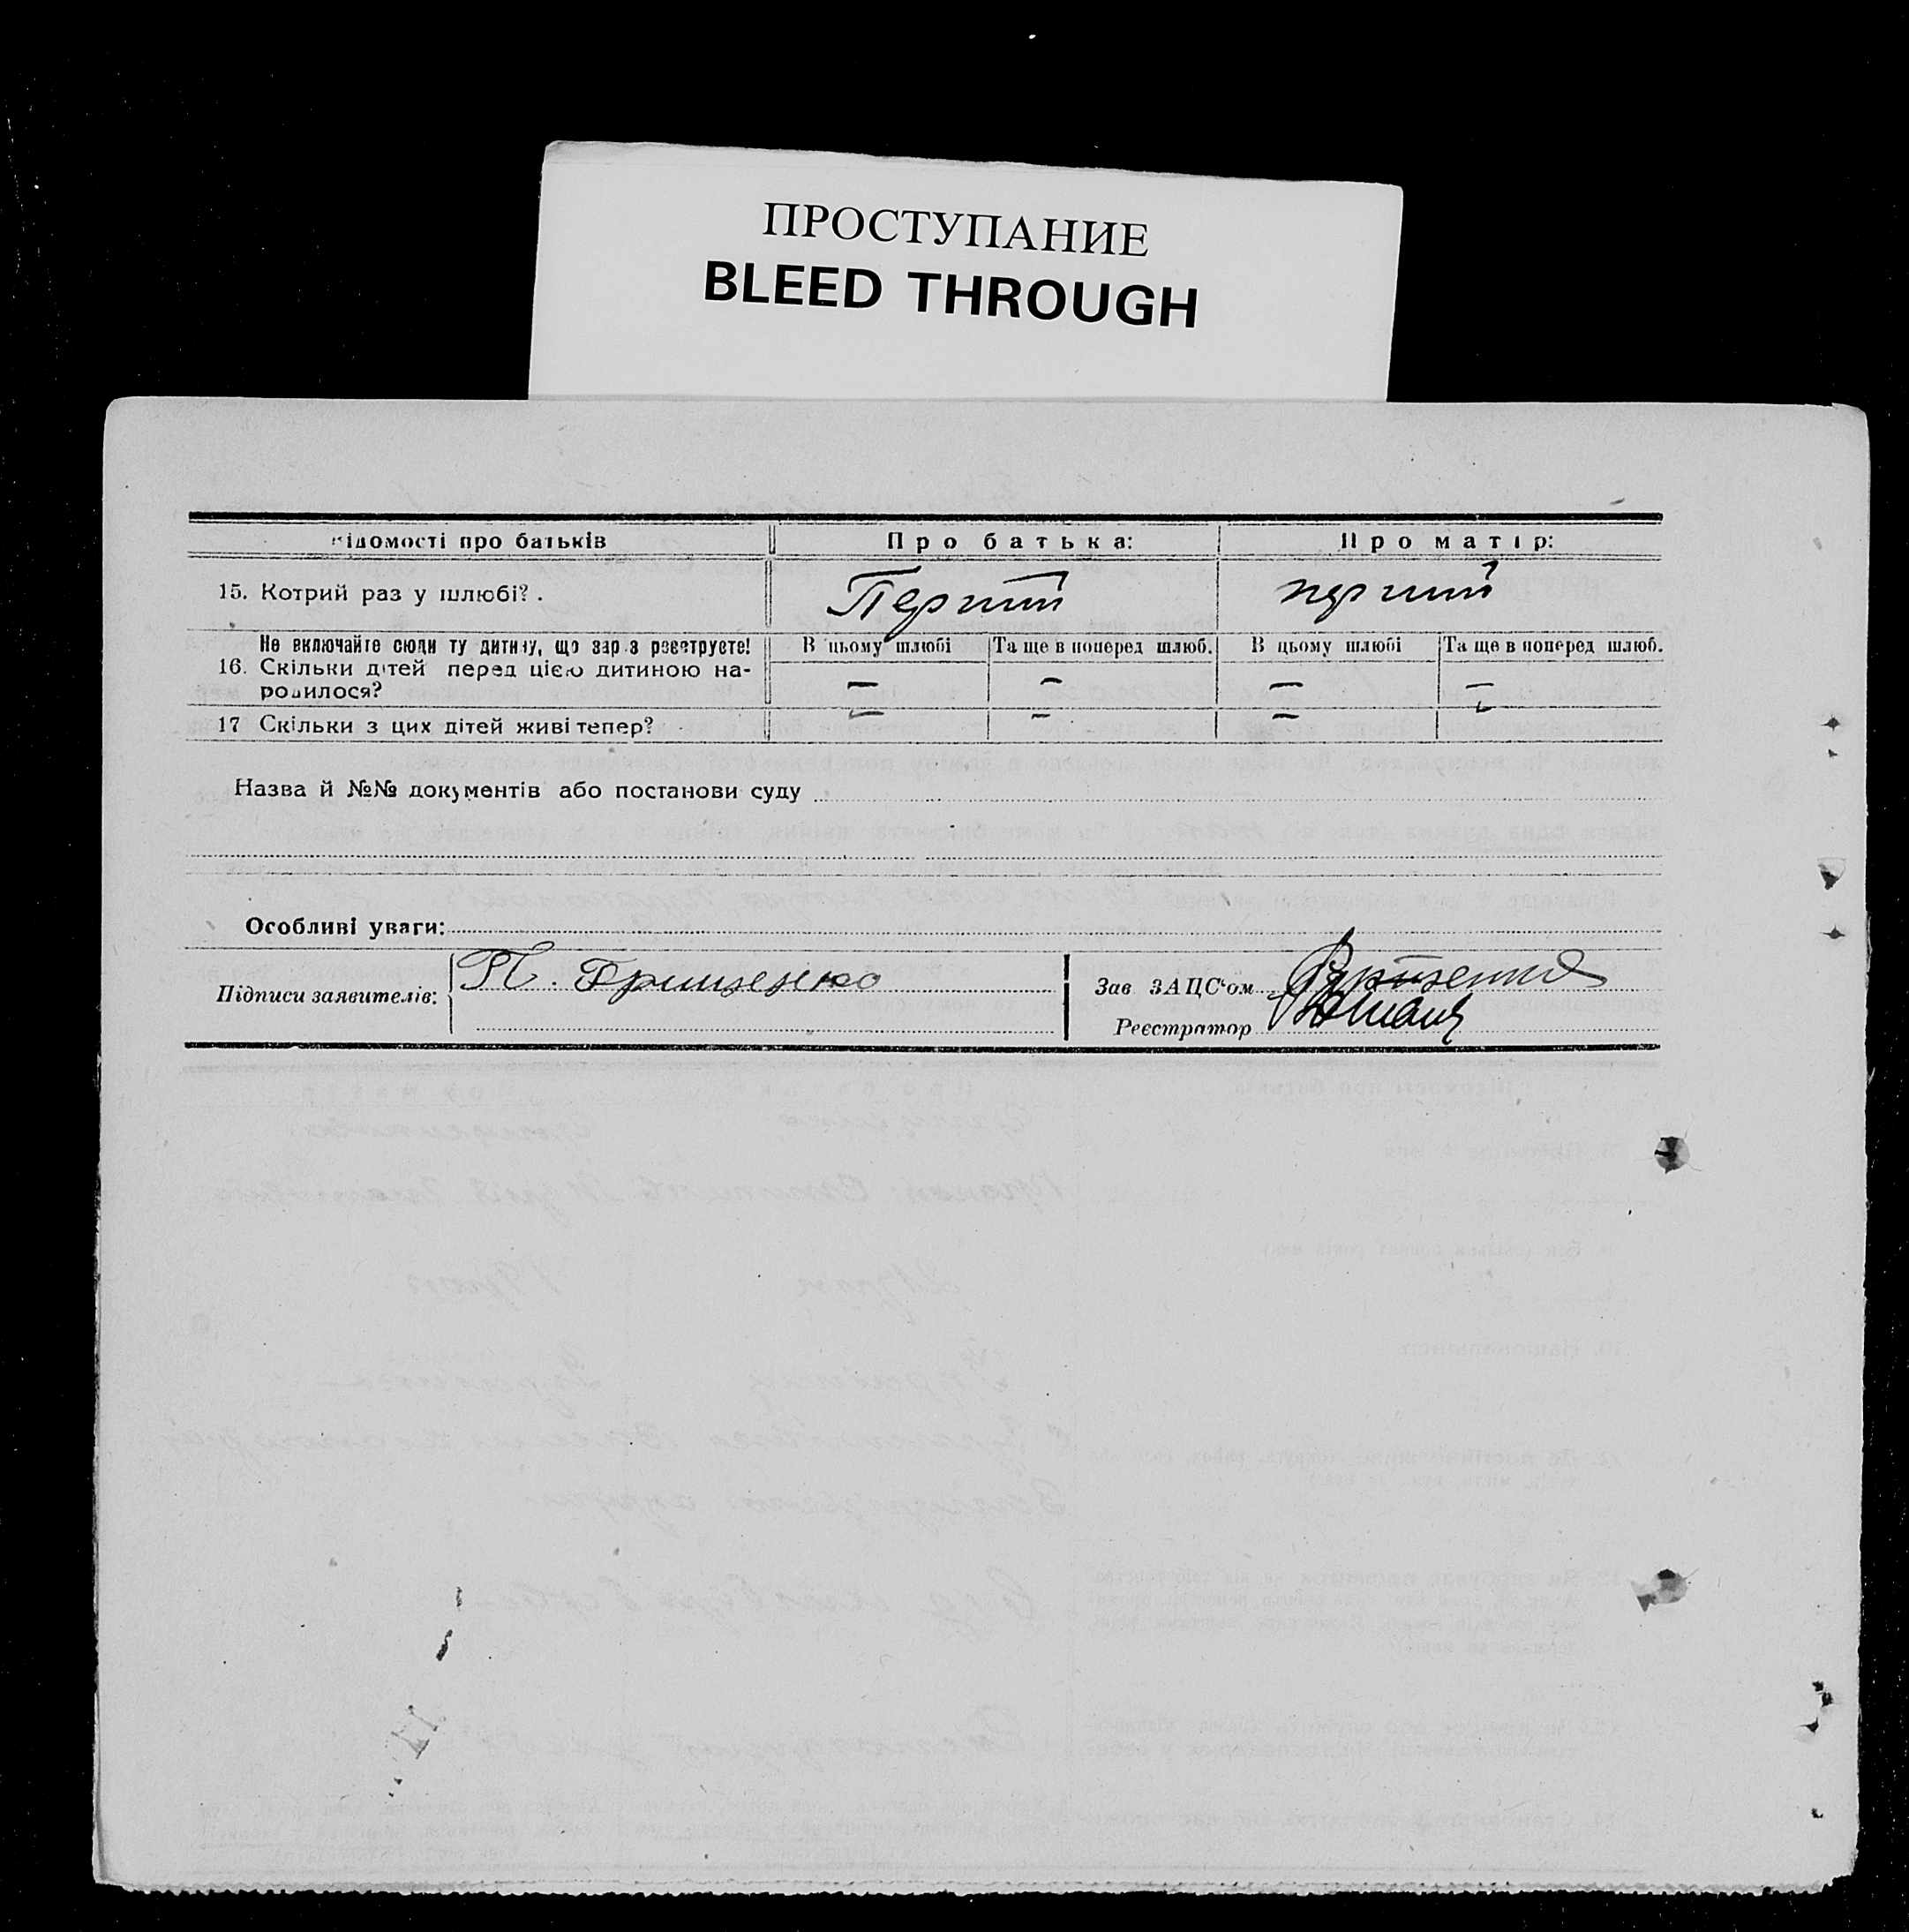 ПРОСТУПАНИЕ
BLEED THROUGH
відомості про батьків
Про батька:
Про матір:
15. Котрий раз у шлюбі?.
Перший
перший
Не включайте сюди ту дитину, що зараз реєструєте!
В цьому шлюбі
Та ще в поперед шлюб.
В цьому шлюбі
Та ще в поперед шлюб.
16. Скільки дітей перед цією дитиною на-
родилося?
—
—
—
—
17 Скільки з цих дітей живі тепер?
—
—
—
—
Назва й №№ документів або постанови суду
Особливі уваги:
Підписи заявителів:
П. Грищенко
Зав ЗАЦС'ом
Реєстратор